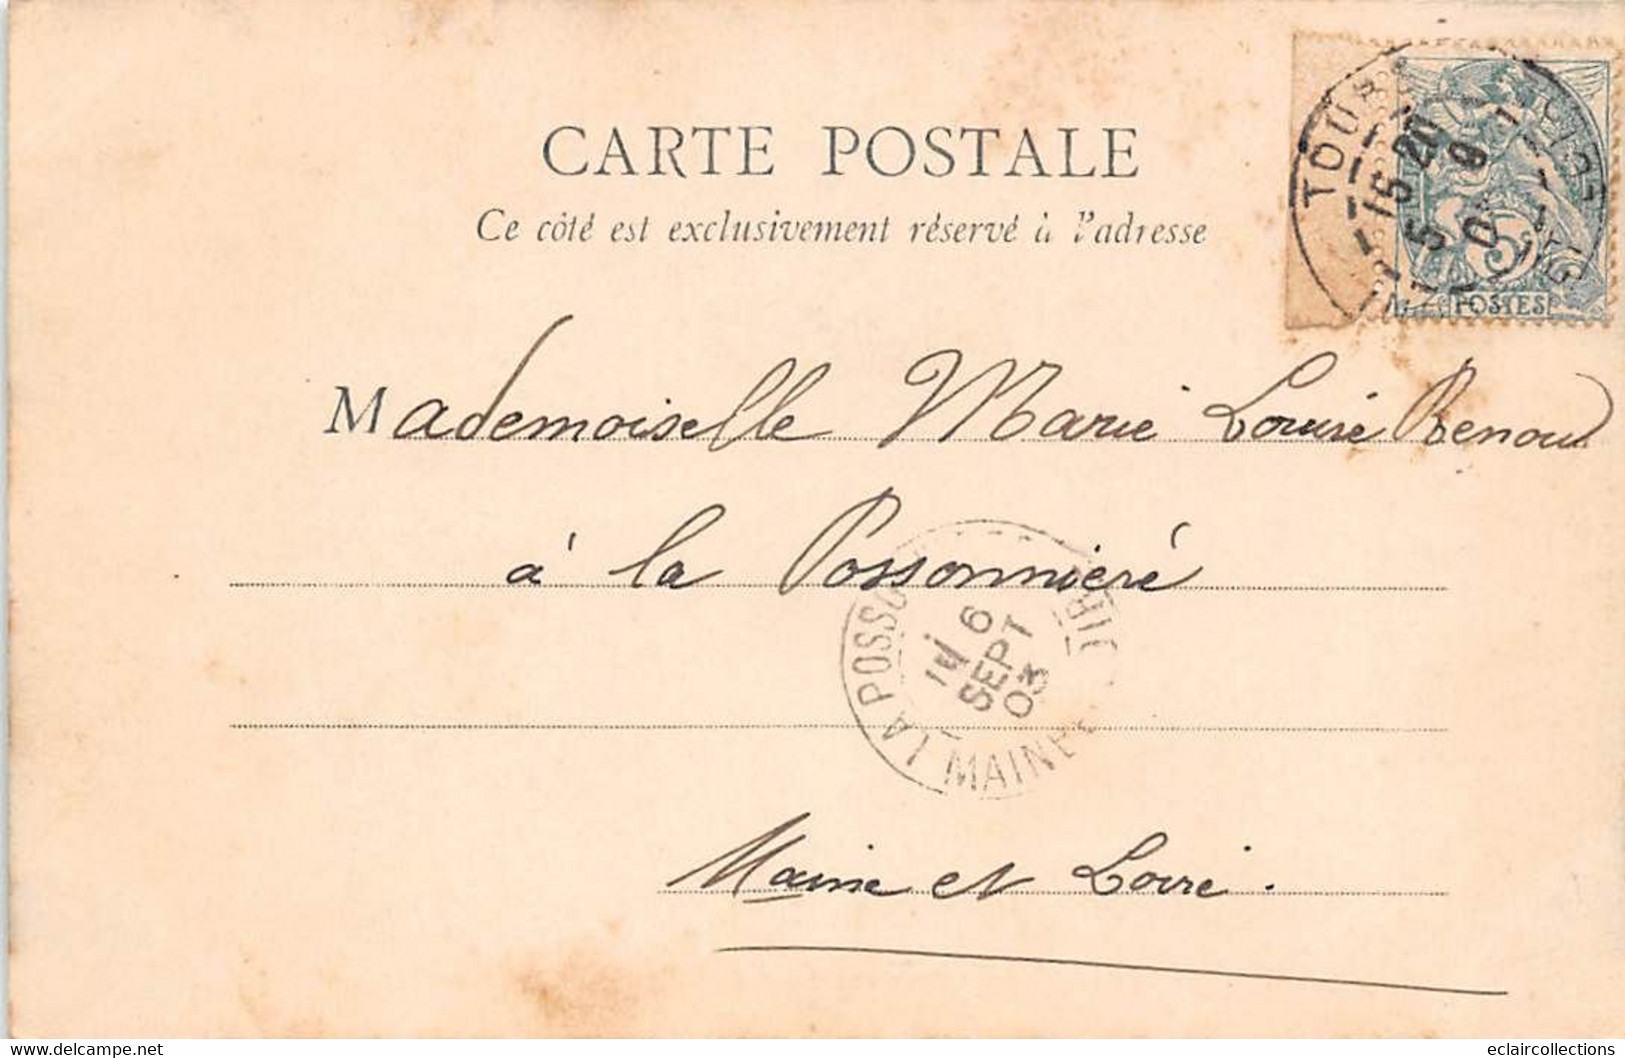 CARTE POSTALE
Ce côté est exclusivement réservé à l'adresse
TOURS
15 20
5 9
03
5
POSTES
Mademoiselle Marie Louise Renou
à la Possonnière
LA POSSO
6
SEPT
03
MAINE
Maine et Loire.
eclaircollections